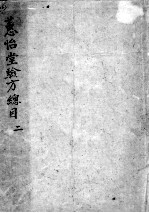 慈怡堂驗方總目 二